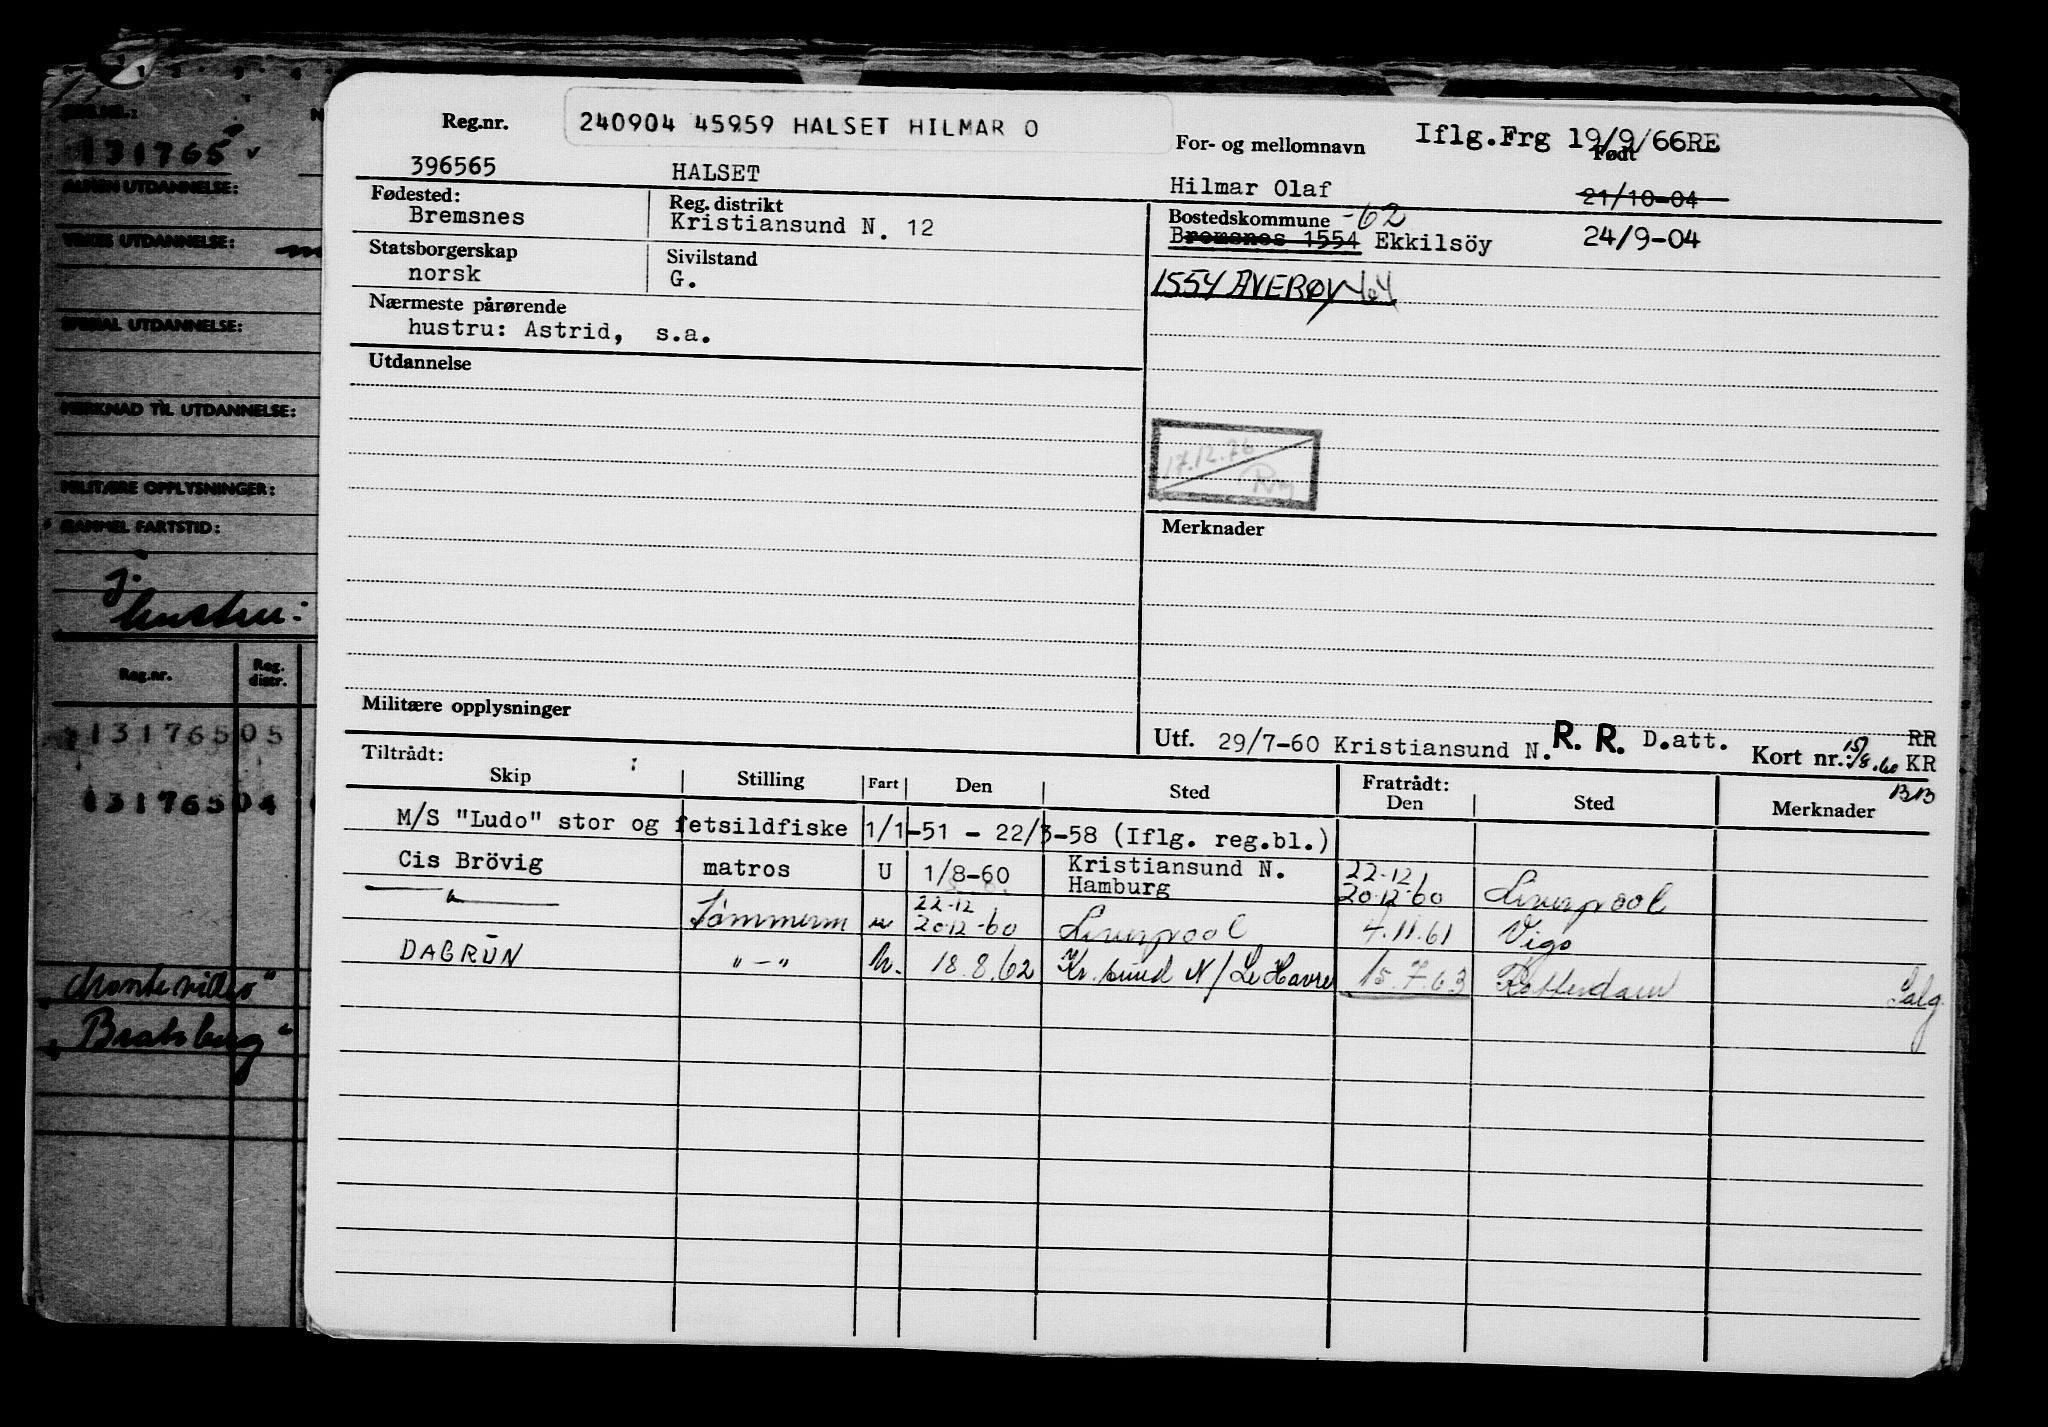 Reg.nr. 240904 45959 HALSET HILMAR O
For- og mellomnavn Iflg.Frg 19/9/66RE
Født
396565 HALSET Hilmar Olaf 21/10-04
Fødested: Reg. distrikt Bostedskommune -62
Bremsnes Kristiansund N. 12 Bremsnes 1554 Ekkilsöy 24/9-04
Statsborgerskap Sivilstand
norsk G. 1554 AVERØY 64
Nærmeste pårørende
hustru: Astrid, s.a.
Utdannelse
17.12.76
Merknader
Militære opplysninger
Utf. 29/7-60 Kristiansund N. R. R. D.att. Kort nr.: 15/8.60 RR
KR
BB
Tiltrådt: Fratrådt:
Skip Stilling Fart Den Sted Den Sted Merknader
M/S "Ludo" stor og fetsildfiske 1/1-51 - 22/3-58 (Iflg. reg.bl.)
Cis Brövig matros U 1/8-60 Kristiansund N. 22.12
Hamburg 20.12-60 Liverpool
—"— Tömmerm u 22.12
20.12-60 Liverpool 4.11.61 Vigo
DAGRUN "—" u. 18.8.62 Kr.sund N/Le Havre 15.7.63 Rotterdam Salg.
REG.NR.:
131765
ALMEN UTDANNELSE:
YRKES UTDANNELSE:
SPESIAL UTDANNELSE:
MERKNAD TIL UTDANNELSE:
MILITÆRE OPPLYSNINGER:
GAMMEL FARTSTID:
hustru:
Reg.nr. Reg. distr.
131765 05
131765 04
Montevideo"
Bratsberg"